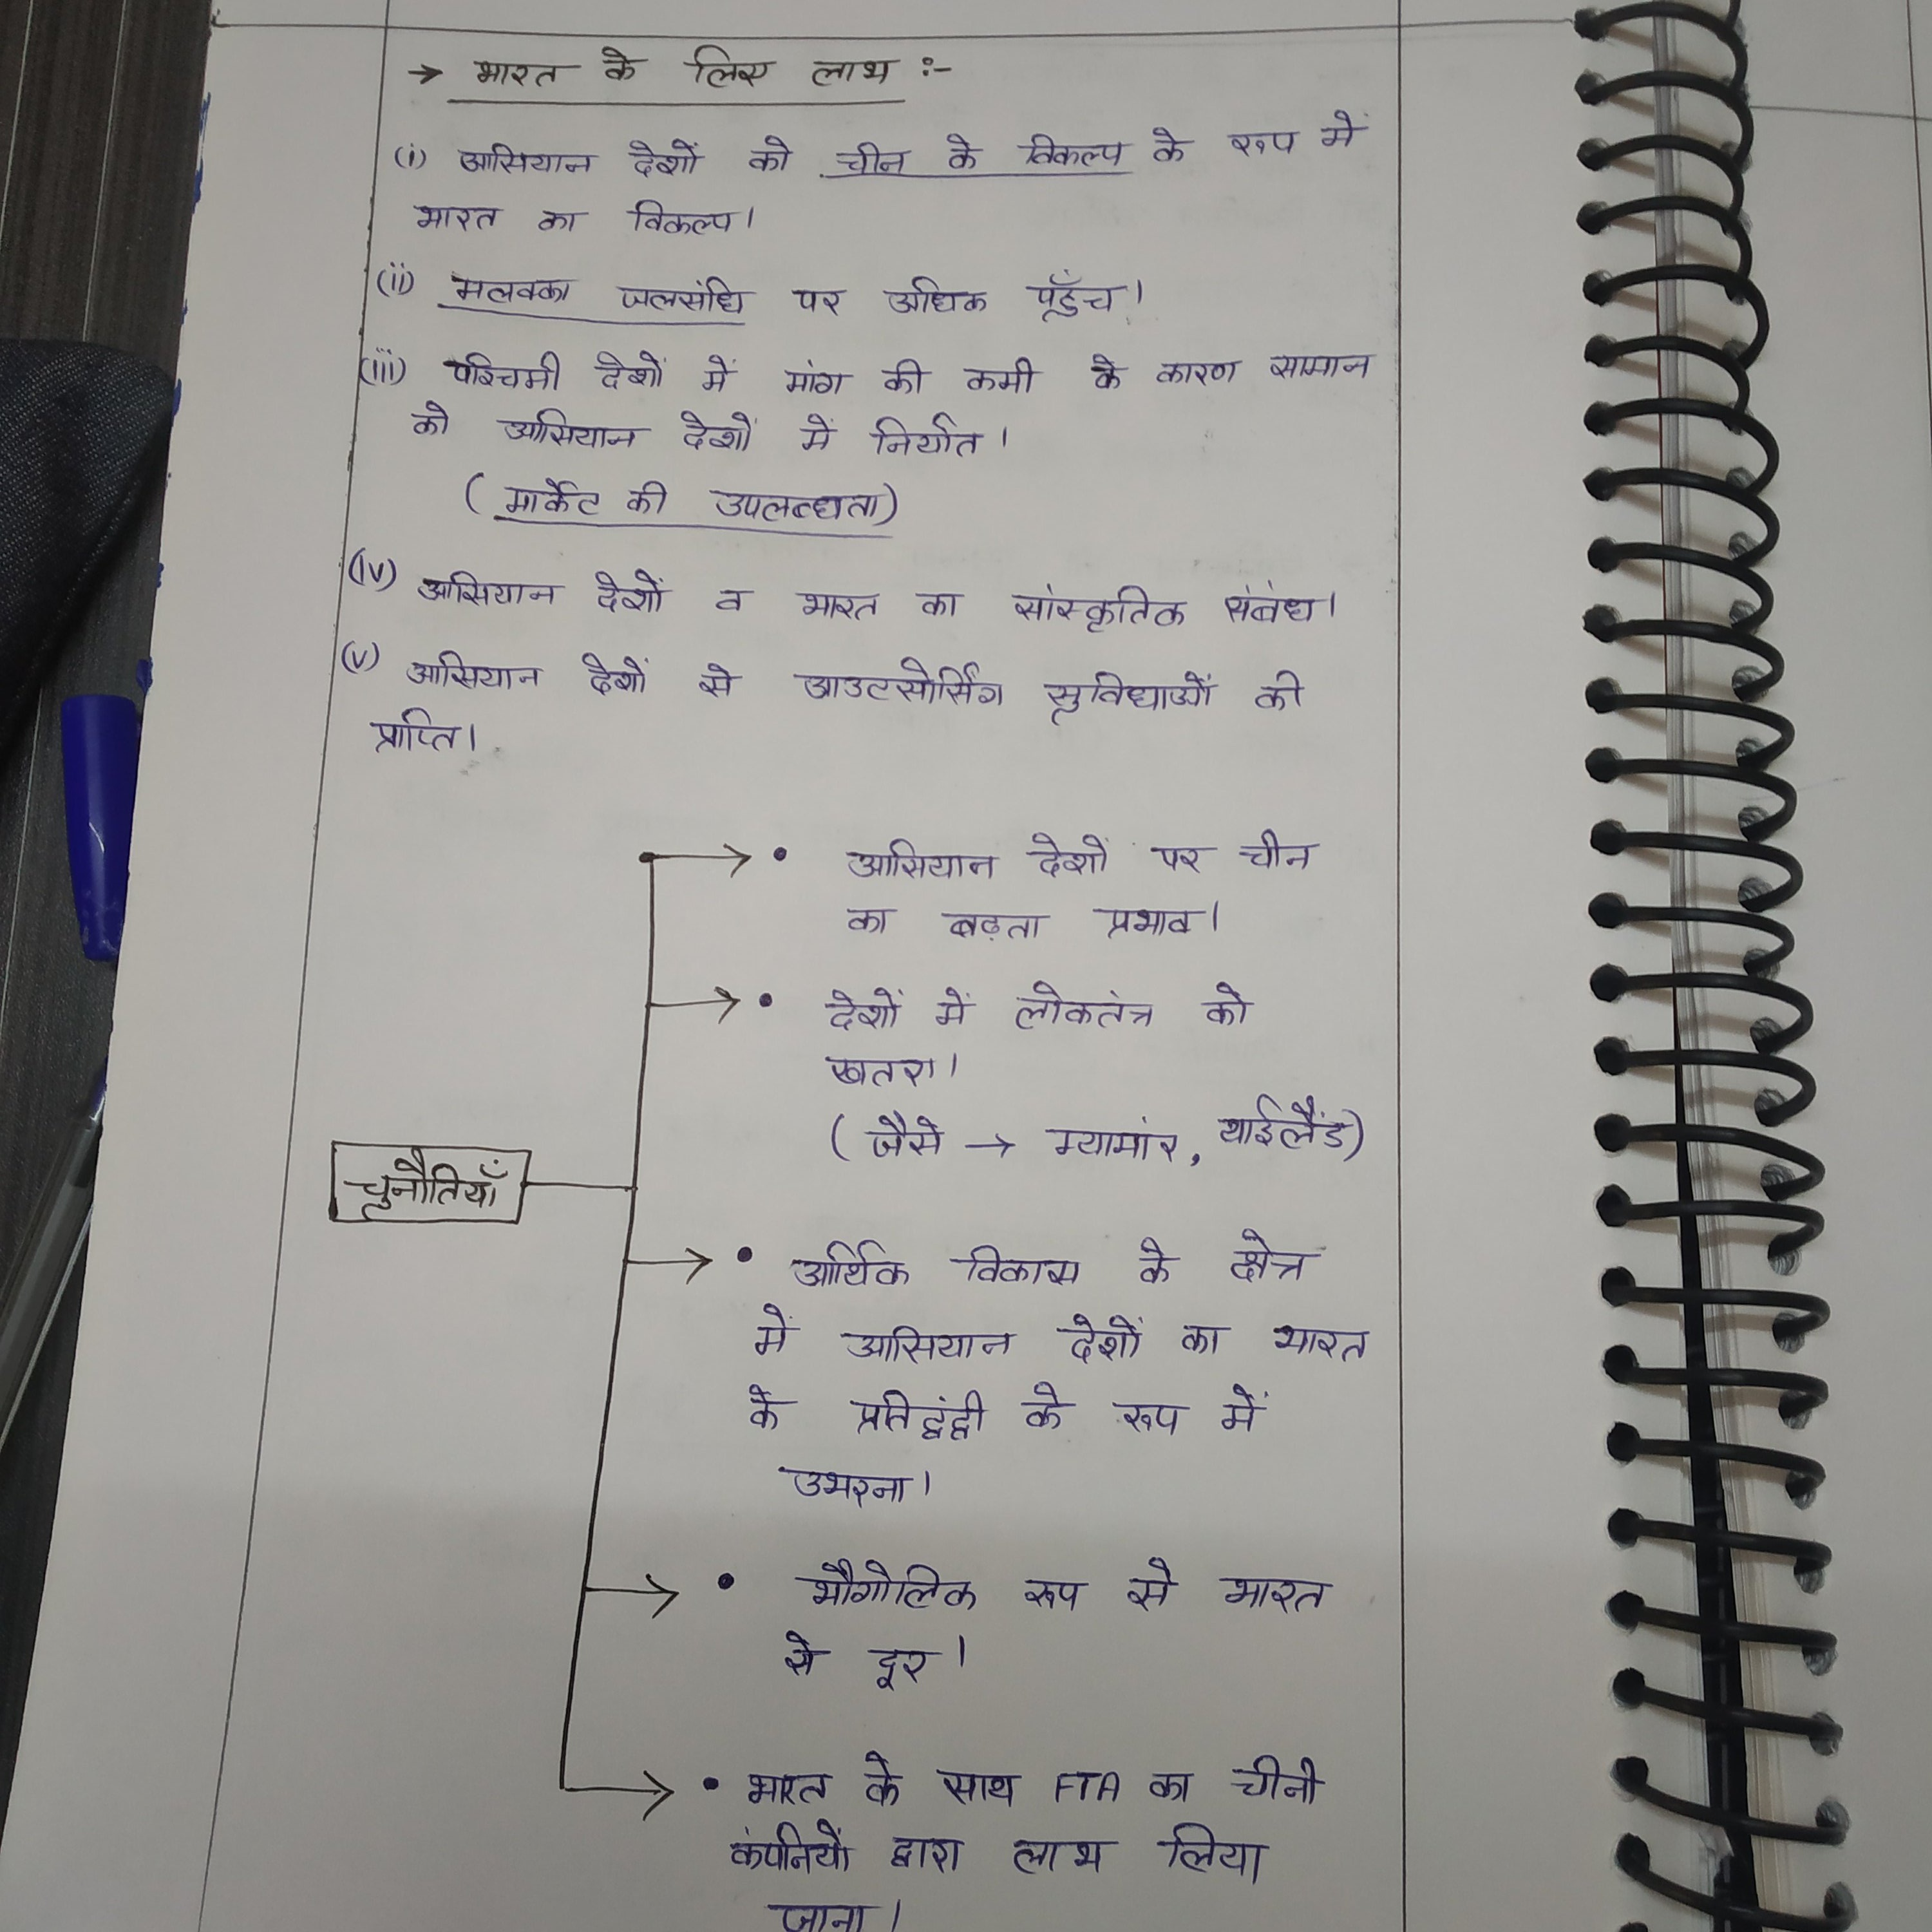 → भारत के लिए लाभ :-
(i) आसियान देशों को चीन के विकल्प के रूप में
भारत का विकल्प।
(ii) मलक्का जलसंधि पर अधिक पहुँच।
(iii) पश्चिमी देशों में मांग की कमी के कारण सामान
को आसियान देशों में निर्यात।
(मार्केट की उपलब्धता)
(iv) आसियान देशों व भारत का सांस्कृतिक संबंध।
(v) आसियान देशों से आउटसोर्सिंग सुविधाओं की
प्राप्ति।
• आसियान देशों पर चीन
का बढ़ता प्रभाव।
• देशों में लोकतंत्र को
खतरा।
(जैसे → म्यामांर, थाईलैंड)
चुनौतियाँ
• आर्थिक विकास के क्षेत्र
में आसियान देशों का भारत
के प्रतिद्वंद्वी के रूप में
उभरना।
• भौगोलिक रूप से भारत
से दूर।
• भारत के साथ FTA का चीनी
कंपनियों द्वारा लाभ लिया
जाना।